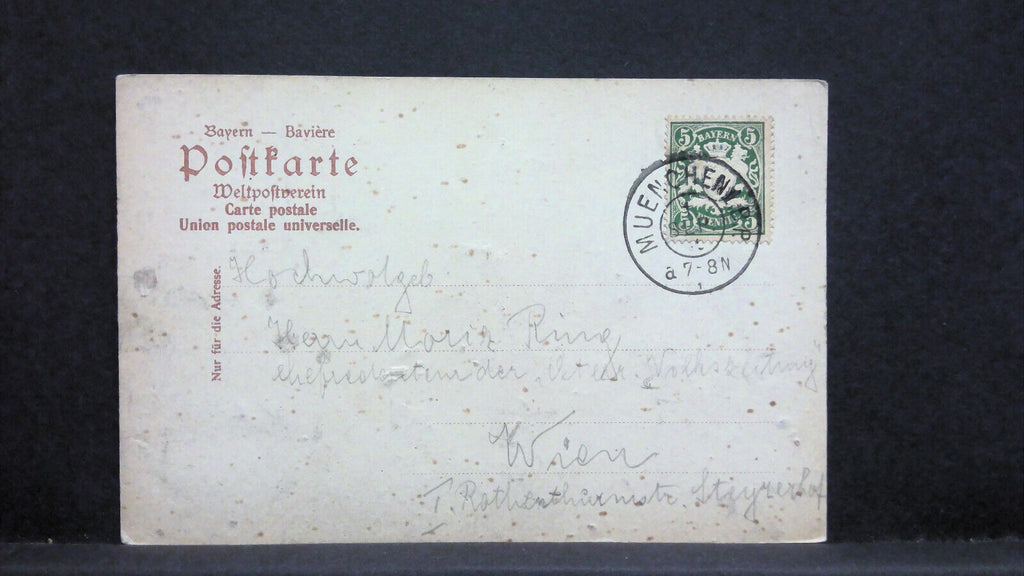 Bayern — Bavière
Postkarte
Weltpostverein
Carte postale
Union postale universelle.
Nur für die Adresse.
5 BAYERN 5
5 PFENNIG 5
MUENCHEN
a 7-8N
1
Hochwolgeb
Herrn Moriz Ring
Chefredacteur der „Volkszeitung"
Wien
I. Rothenthurmstr. Steyrerhof